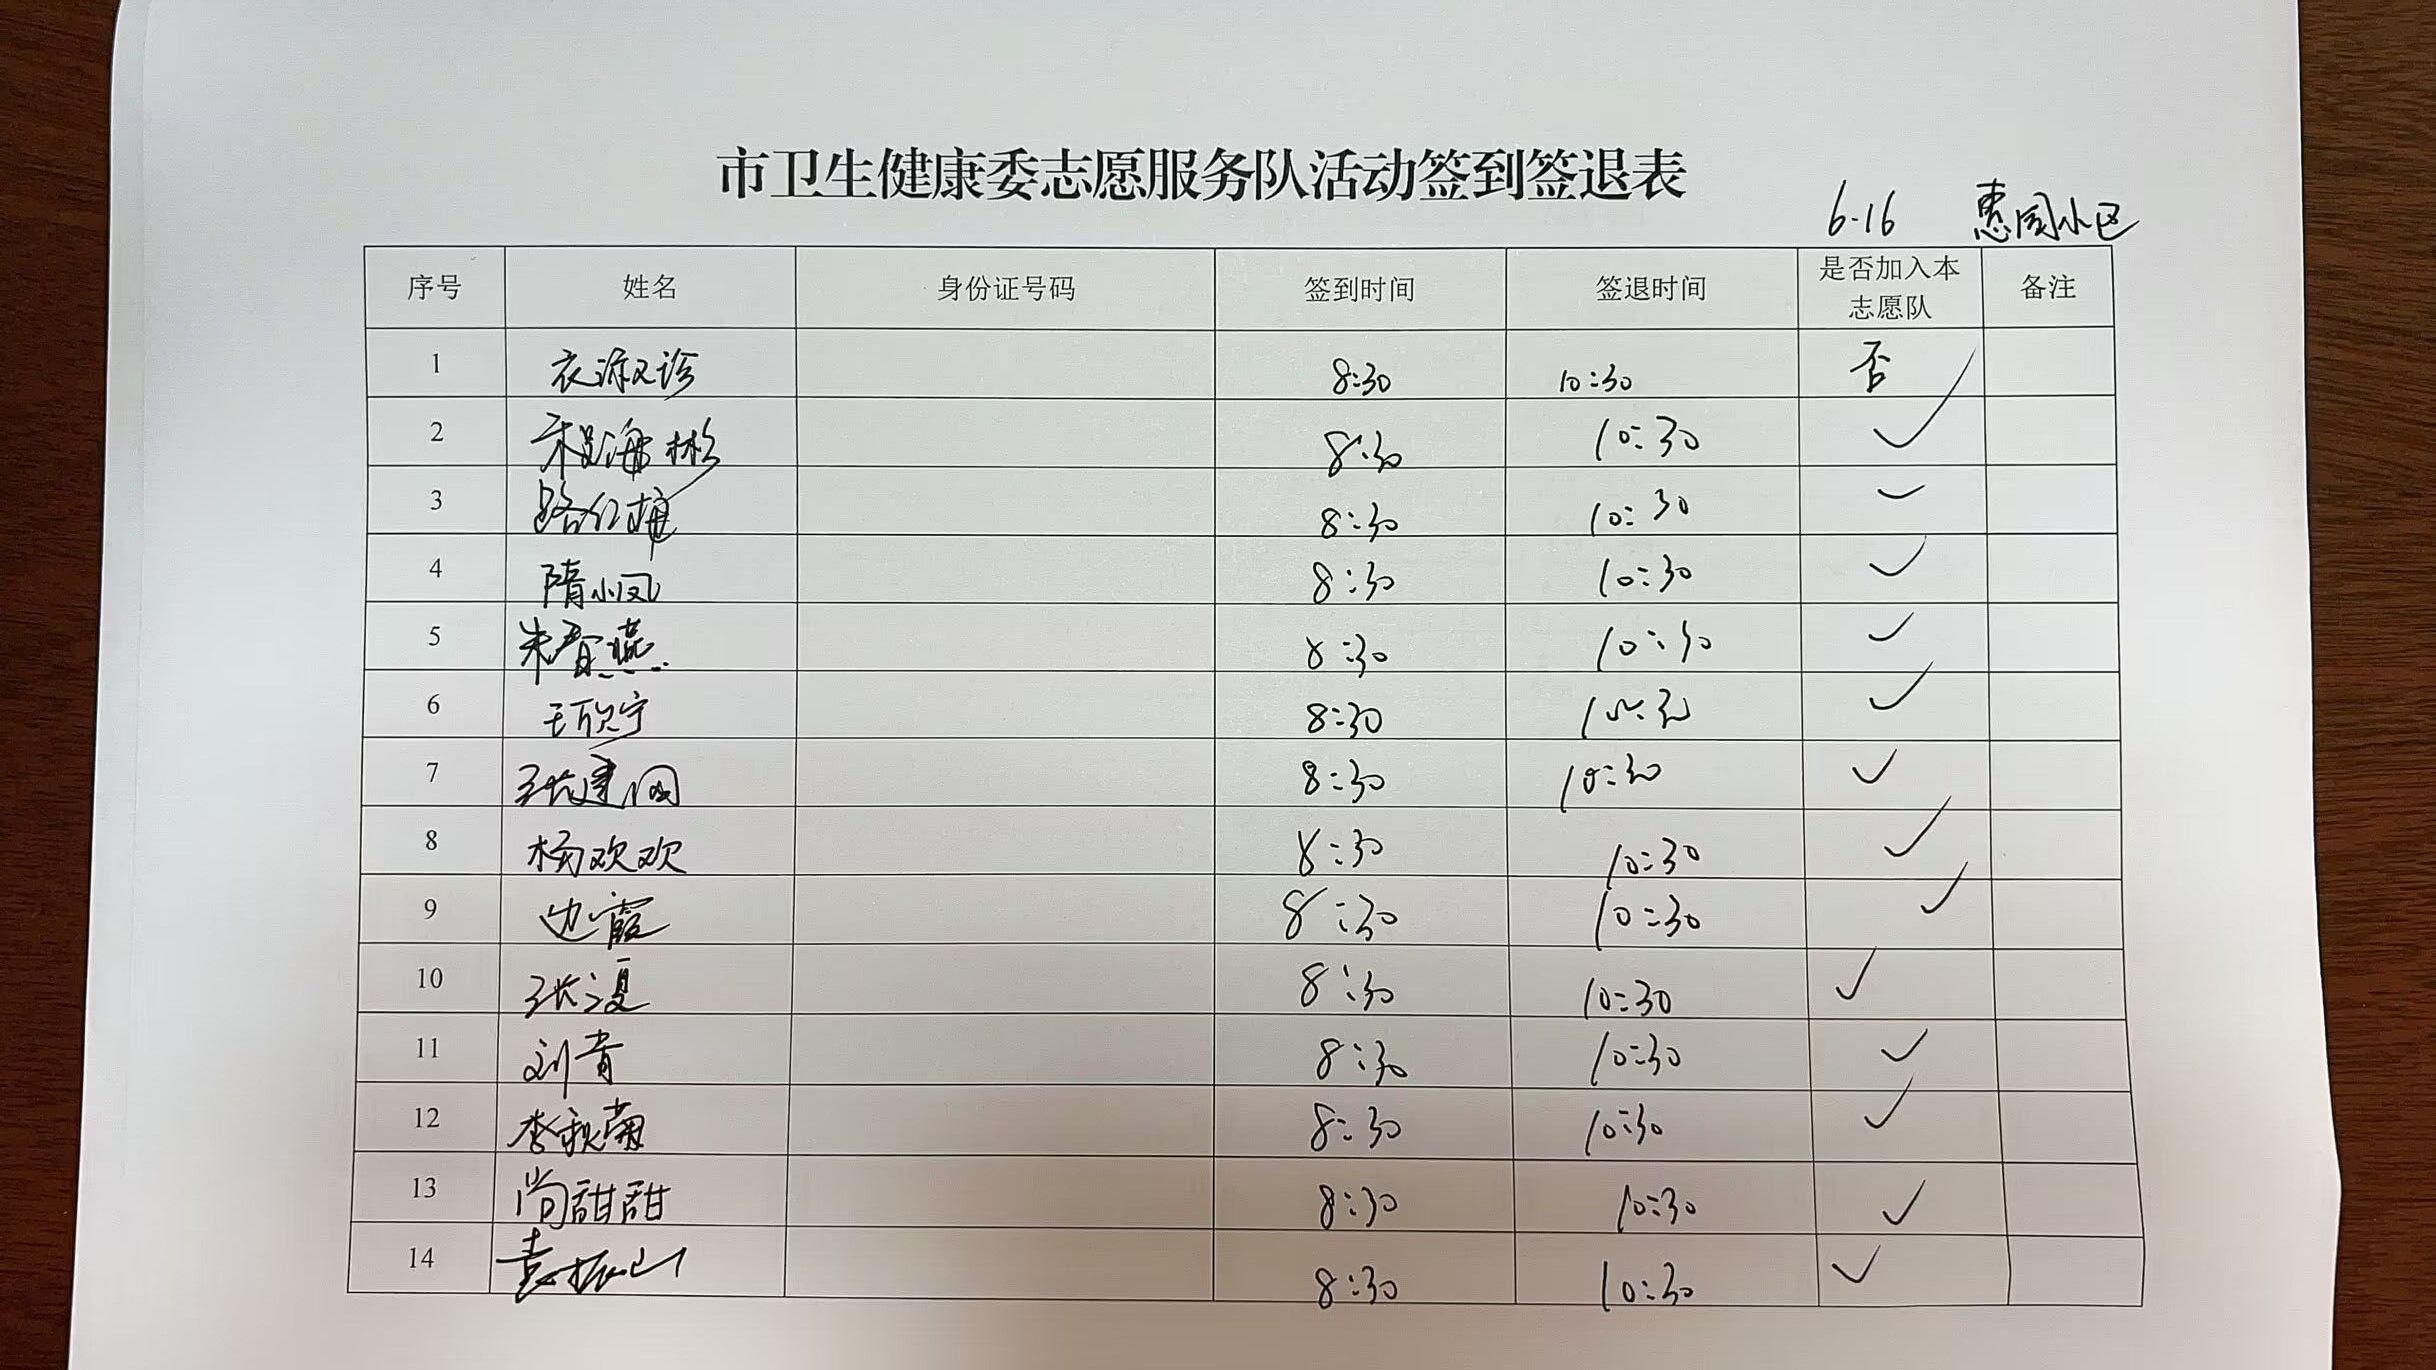 市卫生健康委志愿服务队活动签到签退表
6.16 惠园小区
序号 姓名 身份证号码 签到时间 签退时间 是否加入本志愿队 备注
1 衣淑珍 8:30 10:30 否
2 程海彬 8:30 10:30 ✓
3 路红梅 8:30 10:30 ✓
4 隋小凤 8:30 10:30 ✓
5 朱春燕 8:30 10:30 ✓
6 王欣宁 8:30 10:30 ✓
7 张建国 8:30 10:30 ✓
8 杨欢欢 8:30 10:30 ✓
9 边霞 8:30 10:30 ✓
10 张夏 8:30 10:30 ✓
11 刘青 8:30 10:30 ✓
12 李秋菊 8:30 10:30 ✓
13 尚甜甜 8:30 10:30 ✓
14 8:30 10:30 ✓